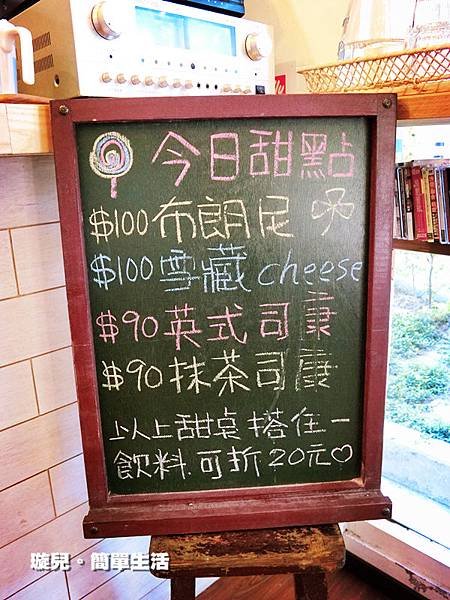 今日甜點
$100布朗尼
$100雪藏cheese
$90英式司康
$90抹茶司康
以上甜桌搭任一
飲料可折20元♡
璇兒。簡單生活